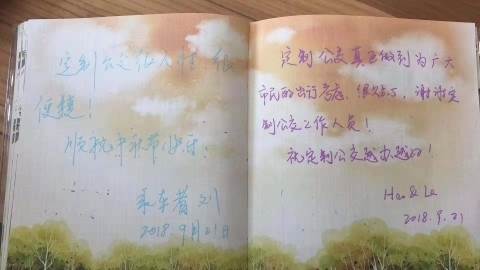 定制公交很人性、很
便捷！
顺祝中秋节快乐！
乘车者 刘
2018.9月21日
定制公交真正做到为广大
市民的出行考虑，很久了，谢谢定
制公交工作人员！
祝定制公交越办越好！
2018.9.21